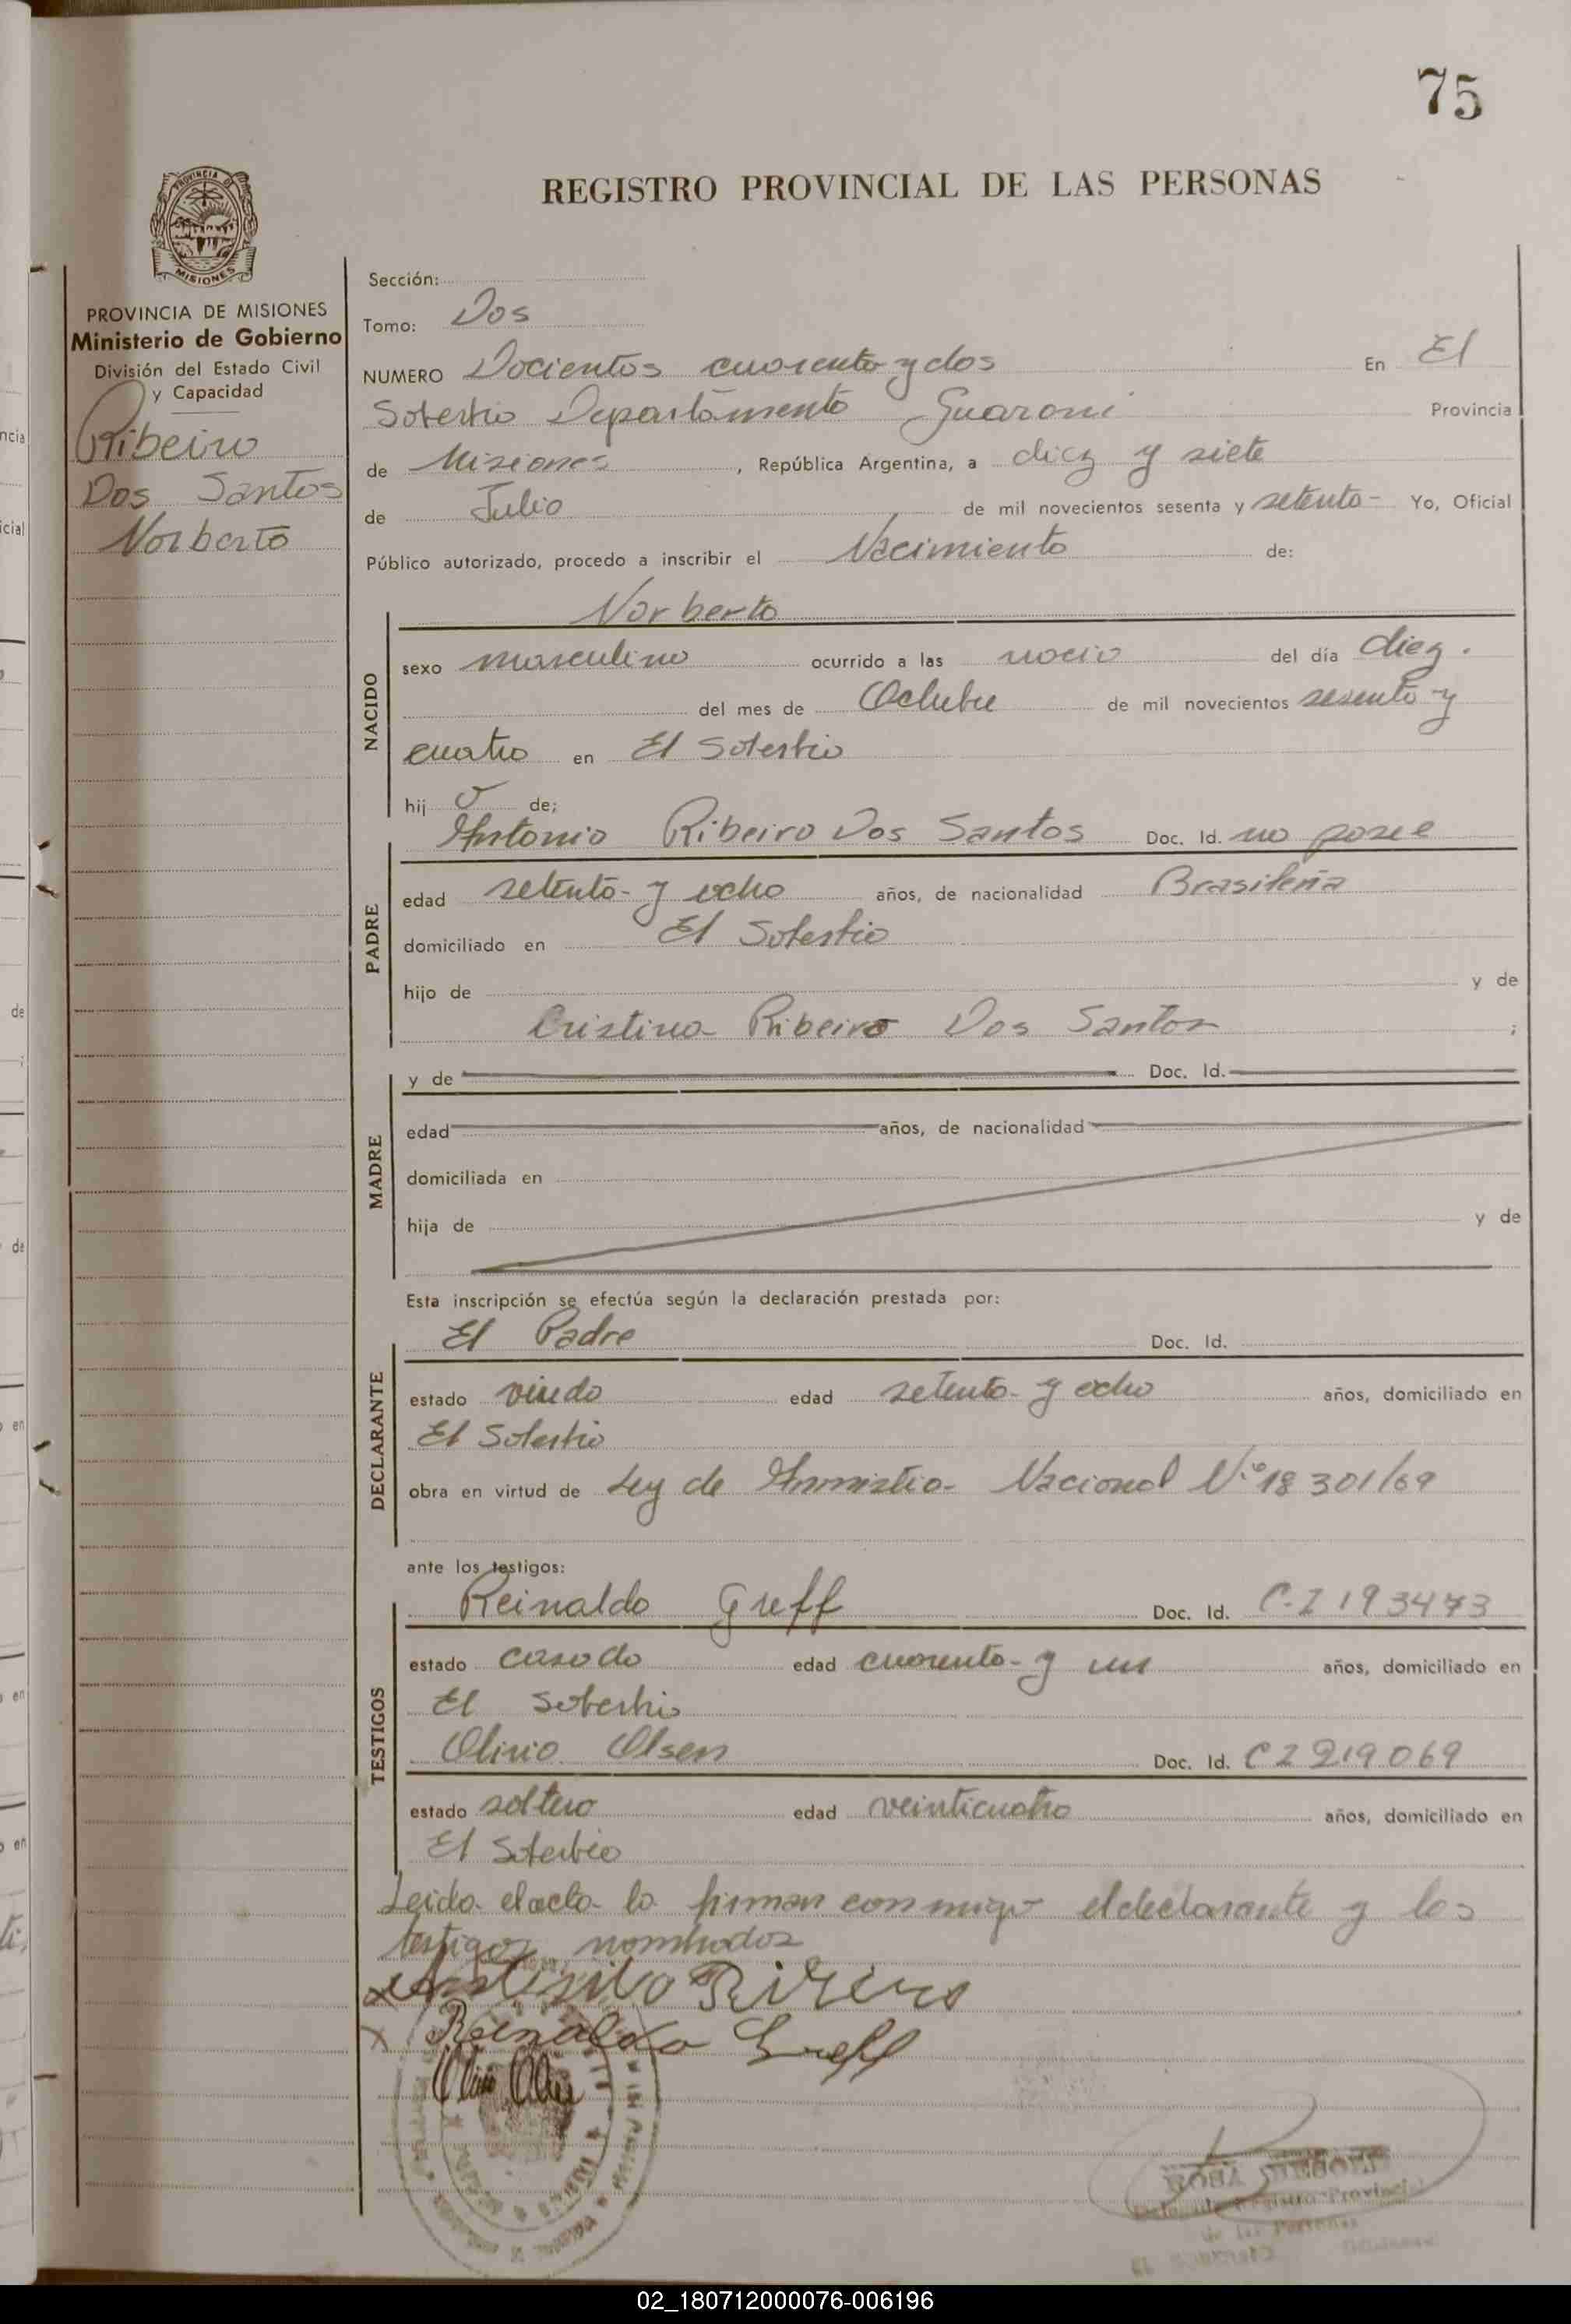 75
REGISTRO PROVINCIAL DE LAS PERSONAS
PROVINCIA DE
MISIONES
PROVINCIA DE MISIONES
Ministerio de Gobierno
División del Estado Civil
y Capacidad
Ribeiro
Dos Santos
Norberto
Sección:
Tomo: Dos
NUMERO Docientos cuarenta y dos En El
Soberbio Departamento Guarani Provincia
de Misiones, República Argentina, a diez y siete
de Julio de mil novecientos sesenta y setenta- Yo, Oficial
Público autorizado, procedo a inscribir el Nacimiento de:
Norberto
NACIDO
sexo masculino ocurrido a las del día diez.
del mes de Octubre de mil novecientos sesenta y
cuatro en El Soberbio
hij o de;
Antonio Ribeiro Dos Santos Doc. Id. no posee
PADRE
edad setenta- y ocho años, de nacionalidad Brasileña
domiciliado en El Soberbio
hijo de y de
Cristina Ribeiro Dos Santos ;
MADRE
y de Doc. Id.
edad años, de nacionalidad
domiciliada en
hija de y de
Esta inscripción se efectúa según la declaración prestada por:
El Padre Doc. Id.
DECLARANTE
estado viudo edad setenta- y ocho años, domiciliado en
El Soberbio
obra en virtud de Ley de Amnistia- Nacional Nº 18 301/69
ante los testigos:
Reinaldo Greff Doc. Id. C.I 193473
TESTIGOS
estado casado edad cuarenta- y un años, domiciliado en
El Soberbio
Olivio Olsen Doc. Id. CI 219069
estado soltero edad veinticuatro años, domiciliado en
El Soberbio
Leida el acta la firman conmigo el declarante y los
testigos nombrados
Antonio Ribeiro
Reinaldo Greff
02_180712000076-006196